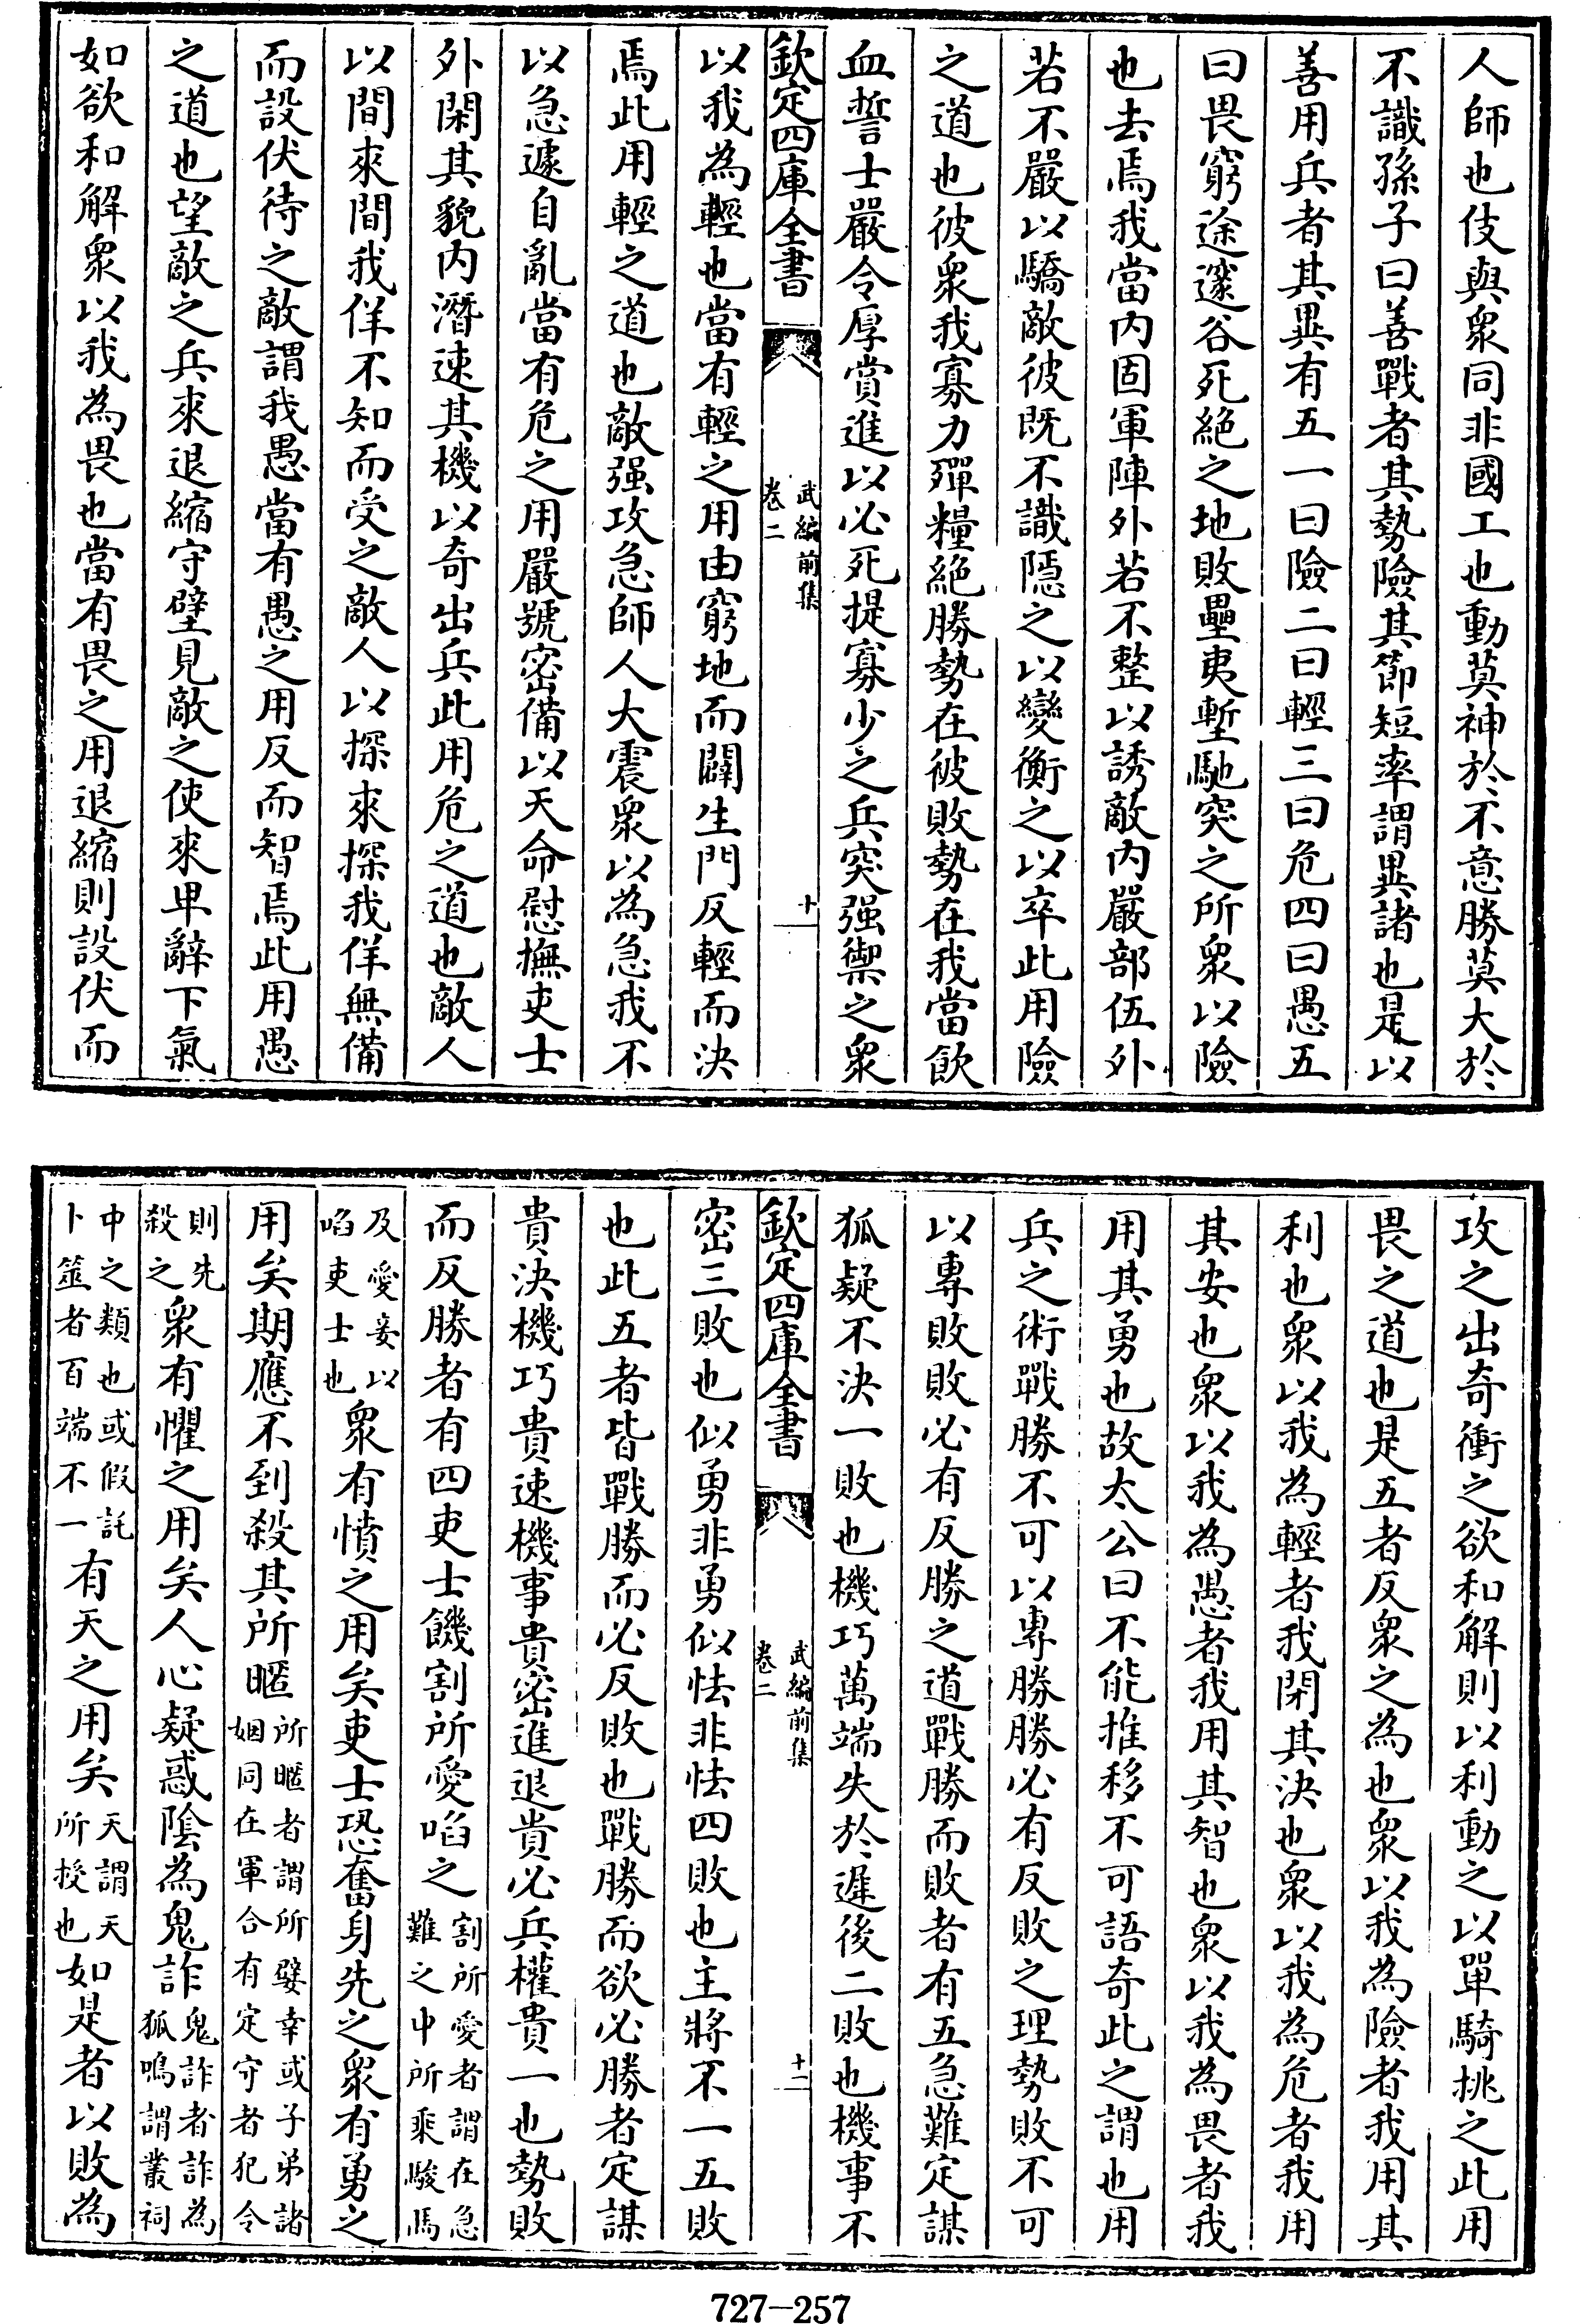 人師也伎與衆同非國工也動莫神於不意勝莫大於
不識孫子曰善戰者其勢險其節短率謂異諸也是以
善用兵者其異有五一曰險二曰輕三曰危四曰愚五
曰畏窮途邃谷死絕之地敗壘夷塹馳突之所衆以險
也去焉我當内固軍陣外若不整以誘敵内嚴部伍外
若不嚴以驕敵彼既不識隱之以變衡之以卒此用險
之道也彼衆我寡力殫糧絕勝勢在彼敗勢在我當飲
血誓士嚴令厚賞進以必死提寡少之兵突强禦之衆
欽定四庫全書
武編前集
卷二
十一
以我為輕也當有輕之用由窮地而闢生門反輕而決
焉此用輕之道也敵强攻急師人大震衆以為急我不
以急遽自亂當有危之用嚴號密備以天命慰撫吏士
外閑其貌内潛速其機以奇出兵此用危之道也敵人
以間來間我佯不知而受之敵人以探來探我佯無備
而設伏待之敵謂我愚當有愚之用反而智焉此用愚
之道也望敵之兵來退縮守壁見敵之使來卑辭下氣
如欲和解衆以我為畏也當有畏之用退縮則設伏而
攻之出奇衝之欲和解則以利動之以單騎挑之此用
畏之道也是五者反衆之為也衆以我為險者我用其
利也衆以我為輕者我閑其決也衆以我為危者我用
其安也衆以我為愚者我用其智也衆以我為畏者我
用其勇也故太公曰不能推移不可語奇此之謂也用
兵之術戰勝不可以專勝勝必有反敗之理勢敗不可
以專敗敗必有反勝之道戰勝而敗者有五急難定謀
狐疑不決一敗也機巧萬端失於遲後二敗也機事不
欽定四庫全書
武編前集
卷二
十二
密三敗也似勇非勇似怯非怯四敗也主將不一五敗
也此五者皆戰勝而必反敗也戰勝而欲必勝者定謀
貴決機巧貴速機事貴密進退貴必兵權貴一也勢敗
而反勝者有四吏士饑割所愛啗之割所愛者謂在急難之中所乘駿馬
及愛妾以啗吏士也衆有憤之用矣吏士恐奮身先之衆有勇之
用矣期應不到殺其所暱所暱者謂所嬖幸或子弟諸姻同在軍合有定守者犯令
則先殺之衆有懼之用矣人心疑惑陰為鬼詐鬼詐者詐為狐鳴謂叢祠
中之類也或假託卜筮者百端不一有天之用矣天謂天所授也如是者以敗為
727-257